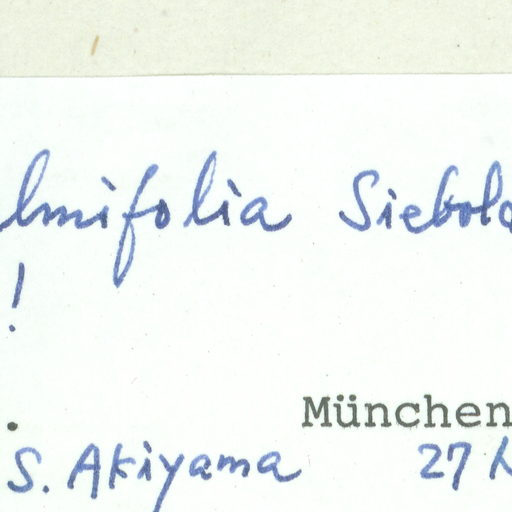 lmifolia Siebol
!
. München
S. Akiyama 27